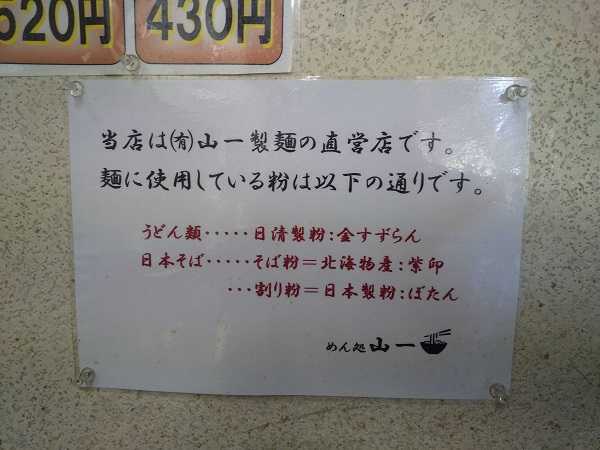 520円
430円
当店は㈲山一製麺の直営店です。
麺に使用している粉は以下の通りです。
うどん類・・・・・日清製粉:金すずらん
日本そば・・・・・そば粉=北海物産:紫印
・・・割り粉=日本製粉:ぼたん
めん処 山一